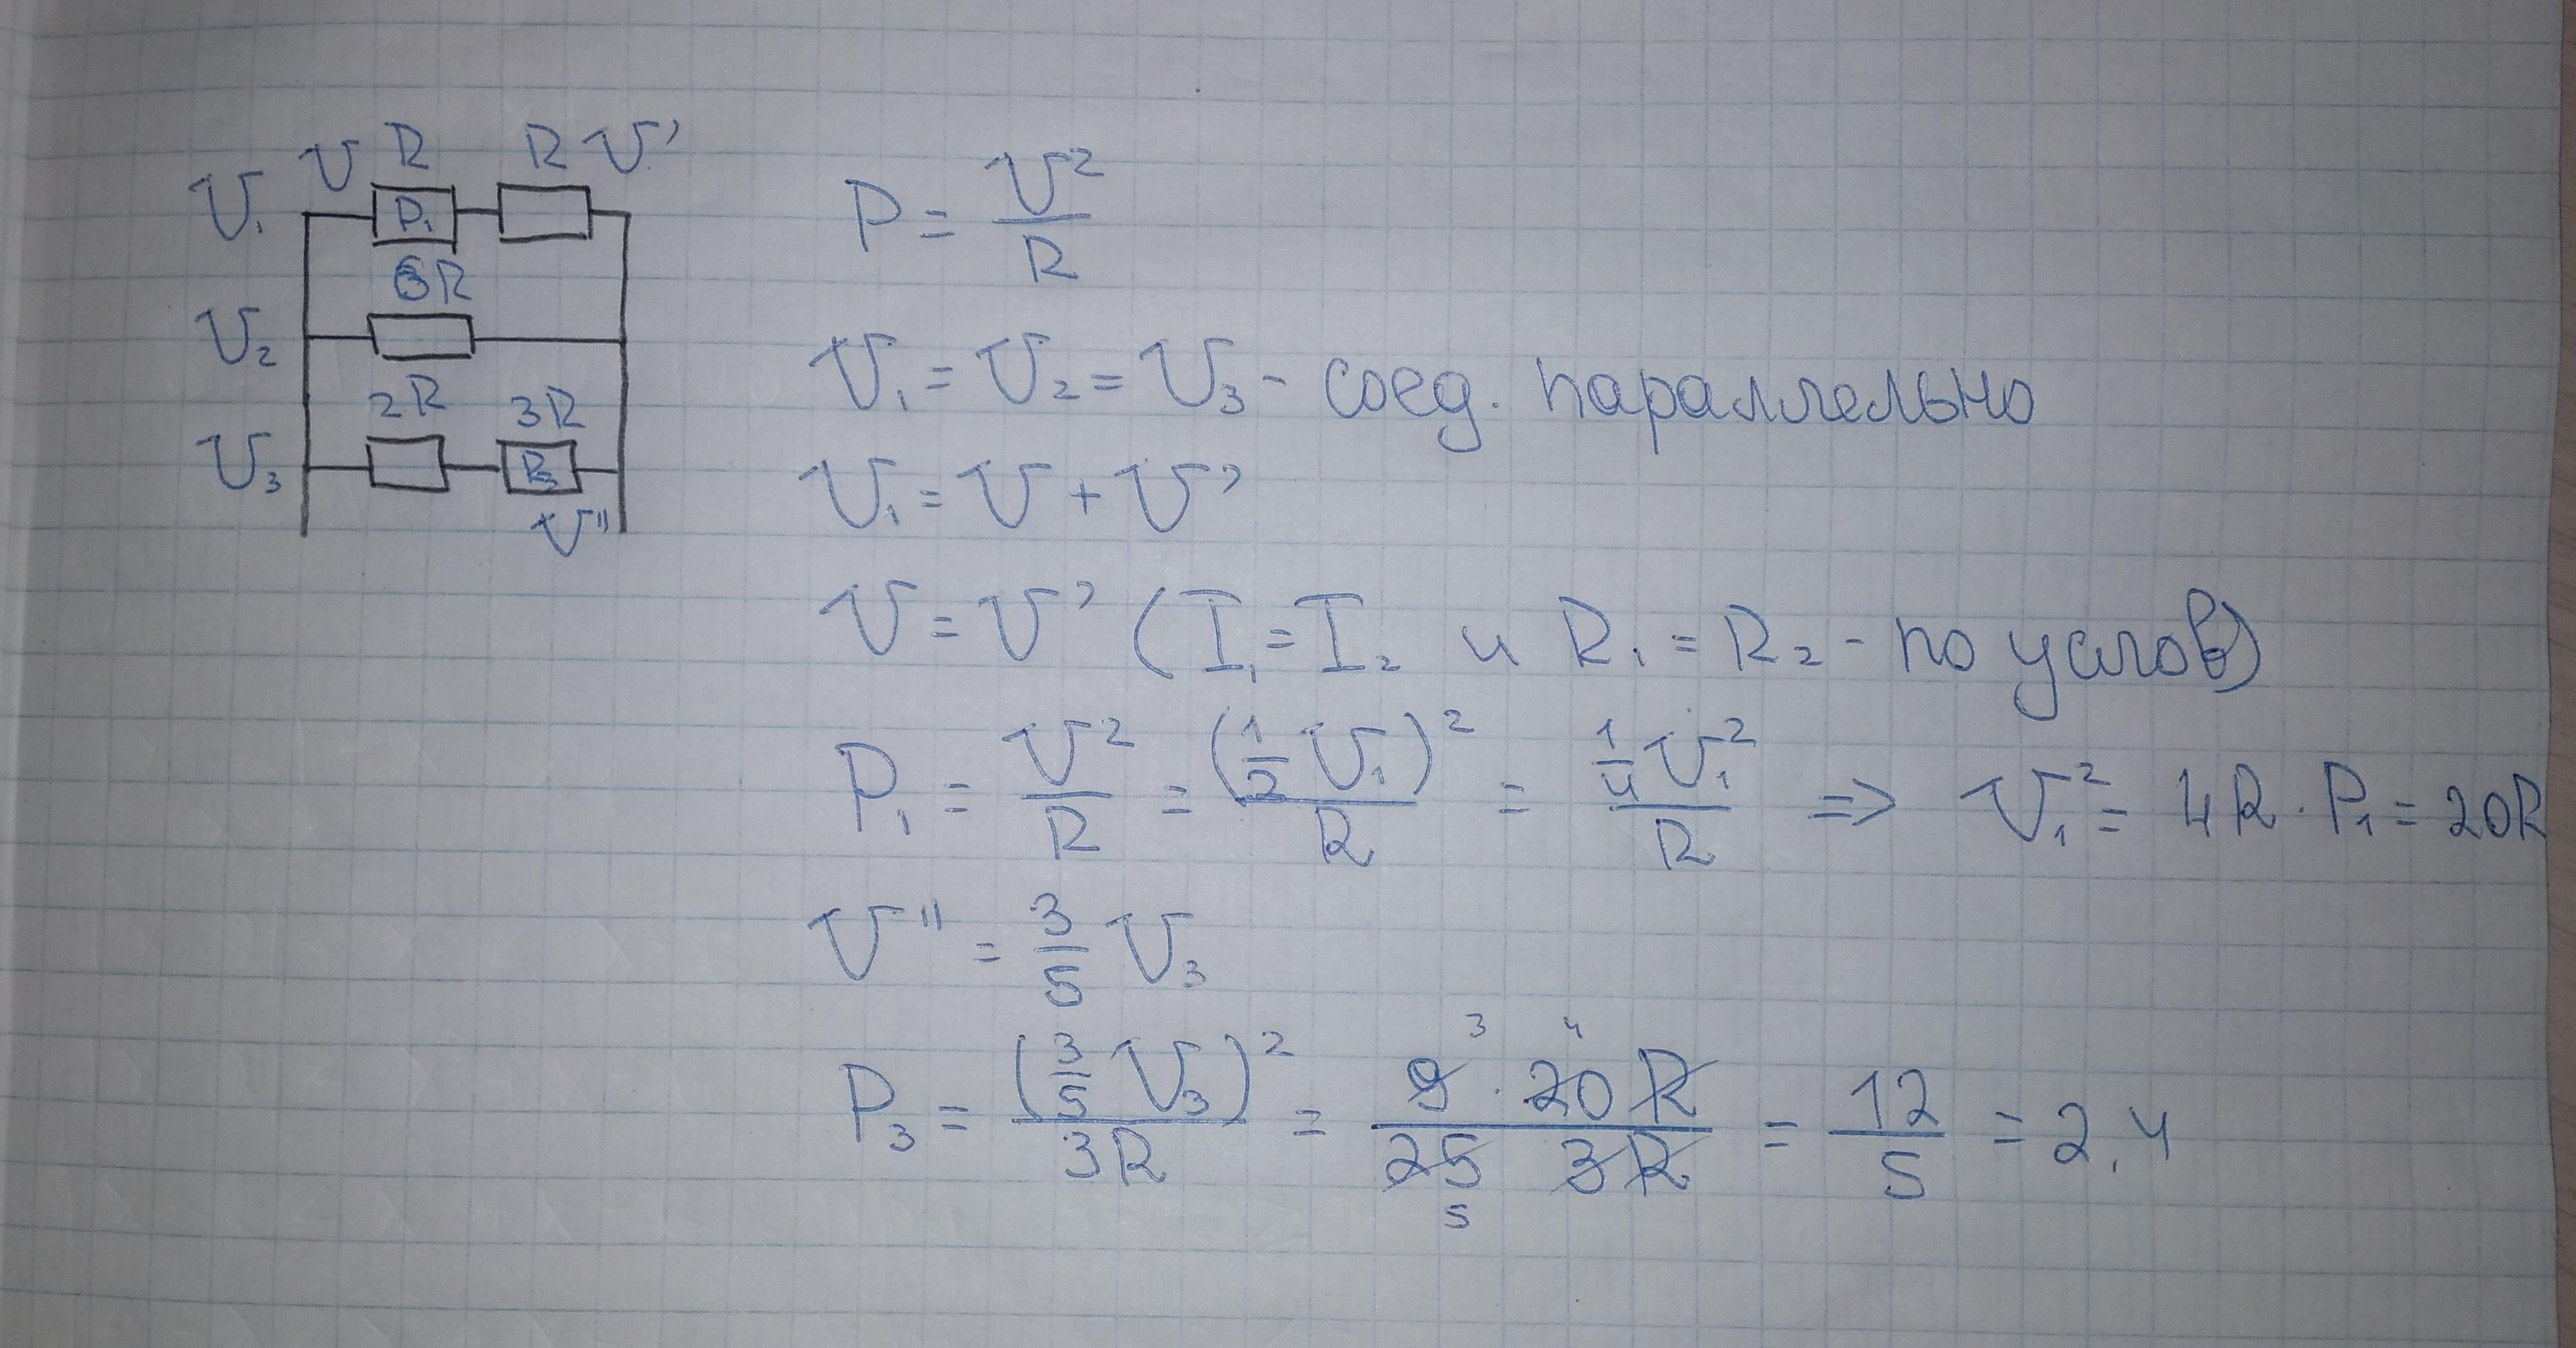 U R R U'
U₁ P₁
6R
U₂
2R 3R
U₃ P₃
U''
P = U²/R
U₁ = U₂ = U₃ - соед. параллельно
U₁ = U + U'
U = U' (I₁ = I₂ и R₁ = R₂ - по услов)
P₁ = U²/R = (1/2 U₁)²/R = 1/4 U₁²/R ⇒ U₁² = 4R · P₁ = 20R
U'' = 3/5 U₃
3 4
P₃ = (3/5 U₃)²/3R = 9 · 20R/25 3R = 12/5 = 2,4
5